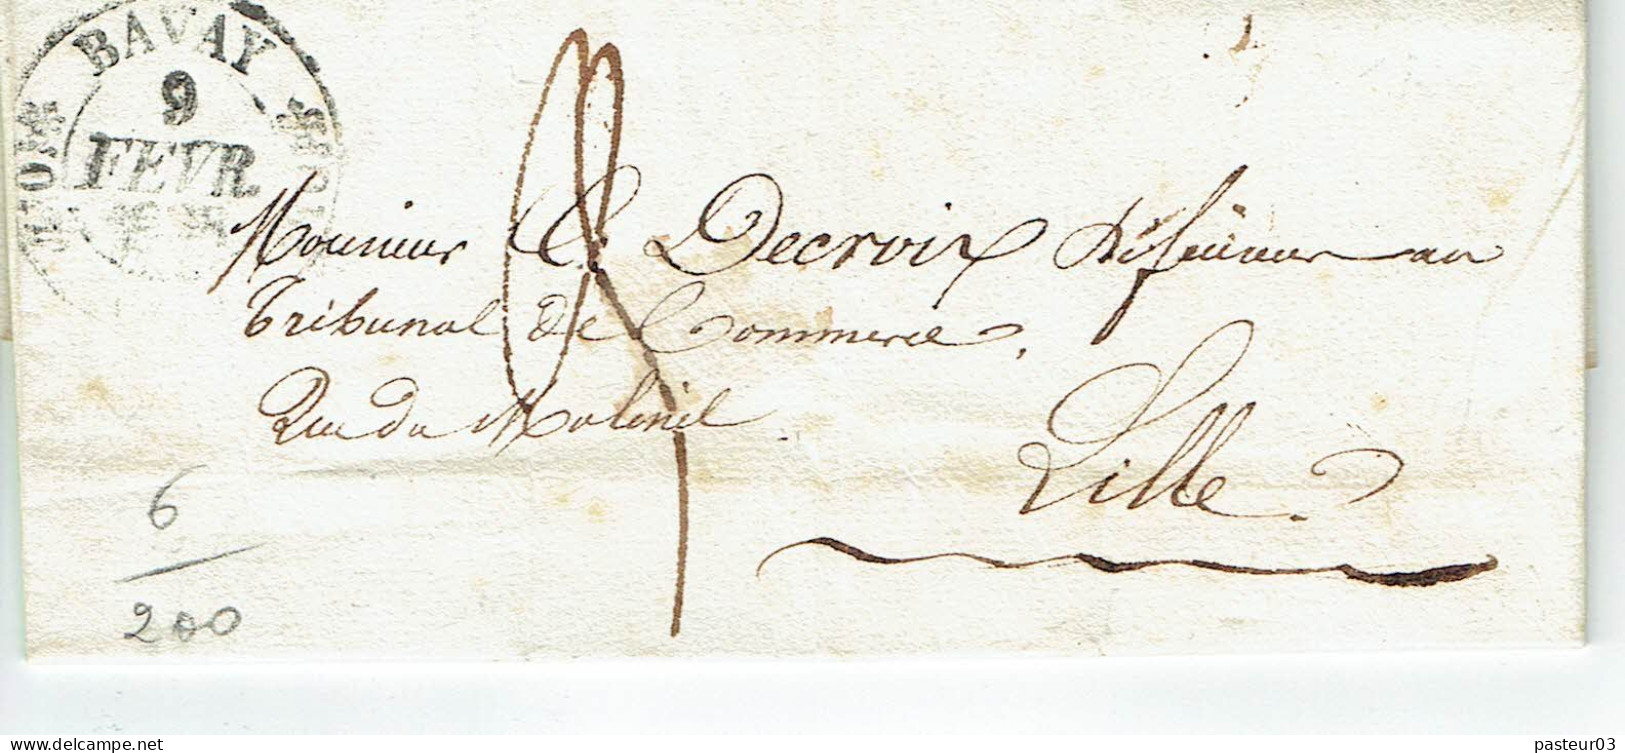 BAVAY
9
FEVR.
Monsieur E. Decroix Défenseur au
Tribunal de Commerce.
Rue du Molinel.
Lille.
6
200
pasteur03